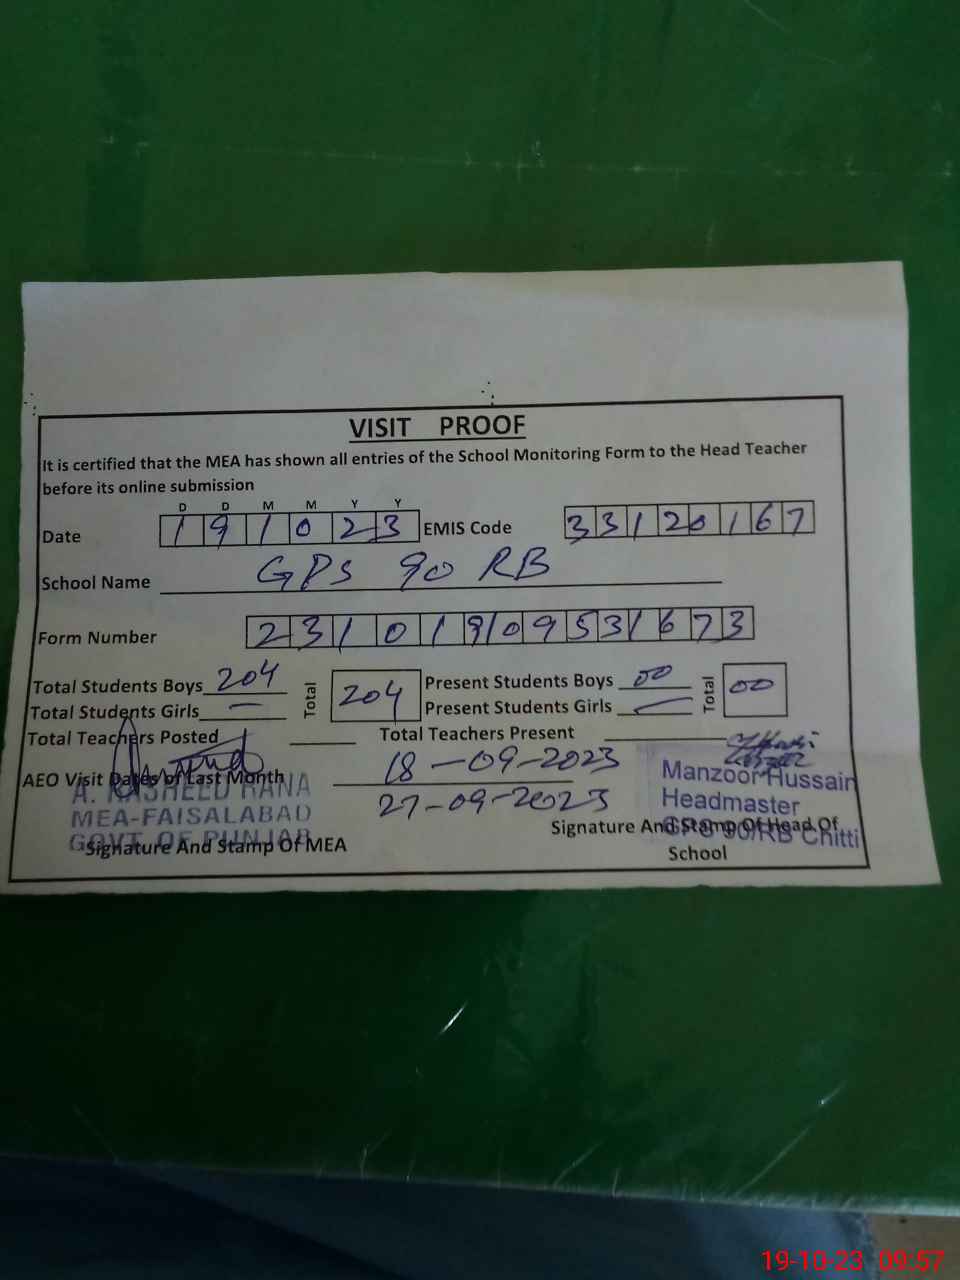 VISIT PROOF
It is certified that the MEA has shown all entries of the School Monitoring Form to the Head Teacher
before its online submission
D D M M Y Y
Date 191023 EMIS Code 33120167
School Name GPS 90 RB
Form Number
Total Students Boys 204 Total 204 Present Students Boys 00 Total 00
Total Students Girls — Present Students Girls —
Total Teachers Posted Total Teachers Present
AEO Visit Dates of Last Month 18-09-2023
27-09-2023
A. RASHEED RANA
MEA-FAISALABAD
GOVT. OF PUNJAB
Signature And Stamp Of MEA
Manzoor Hussain
Headmaster
GPS 90/RB Chitti
Signature And Stamp Of Head Of
School
19-10-23 09:57